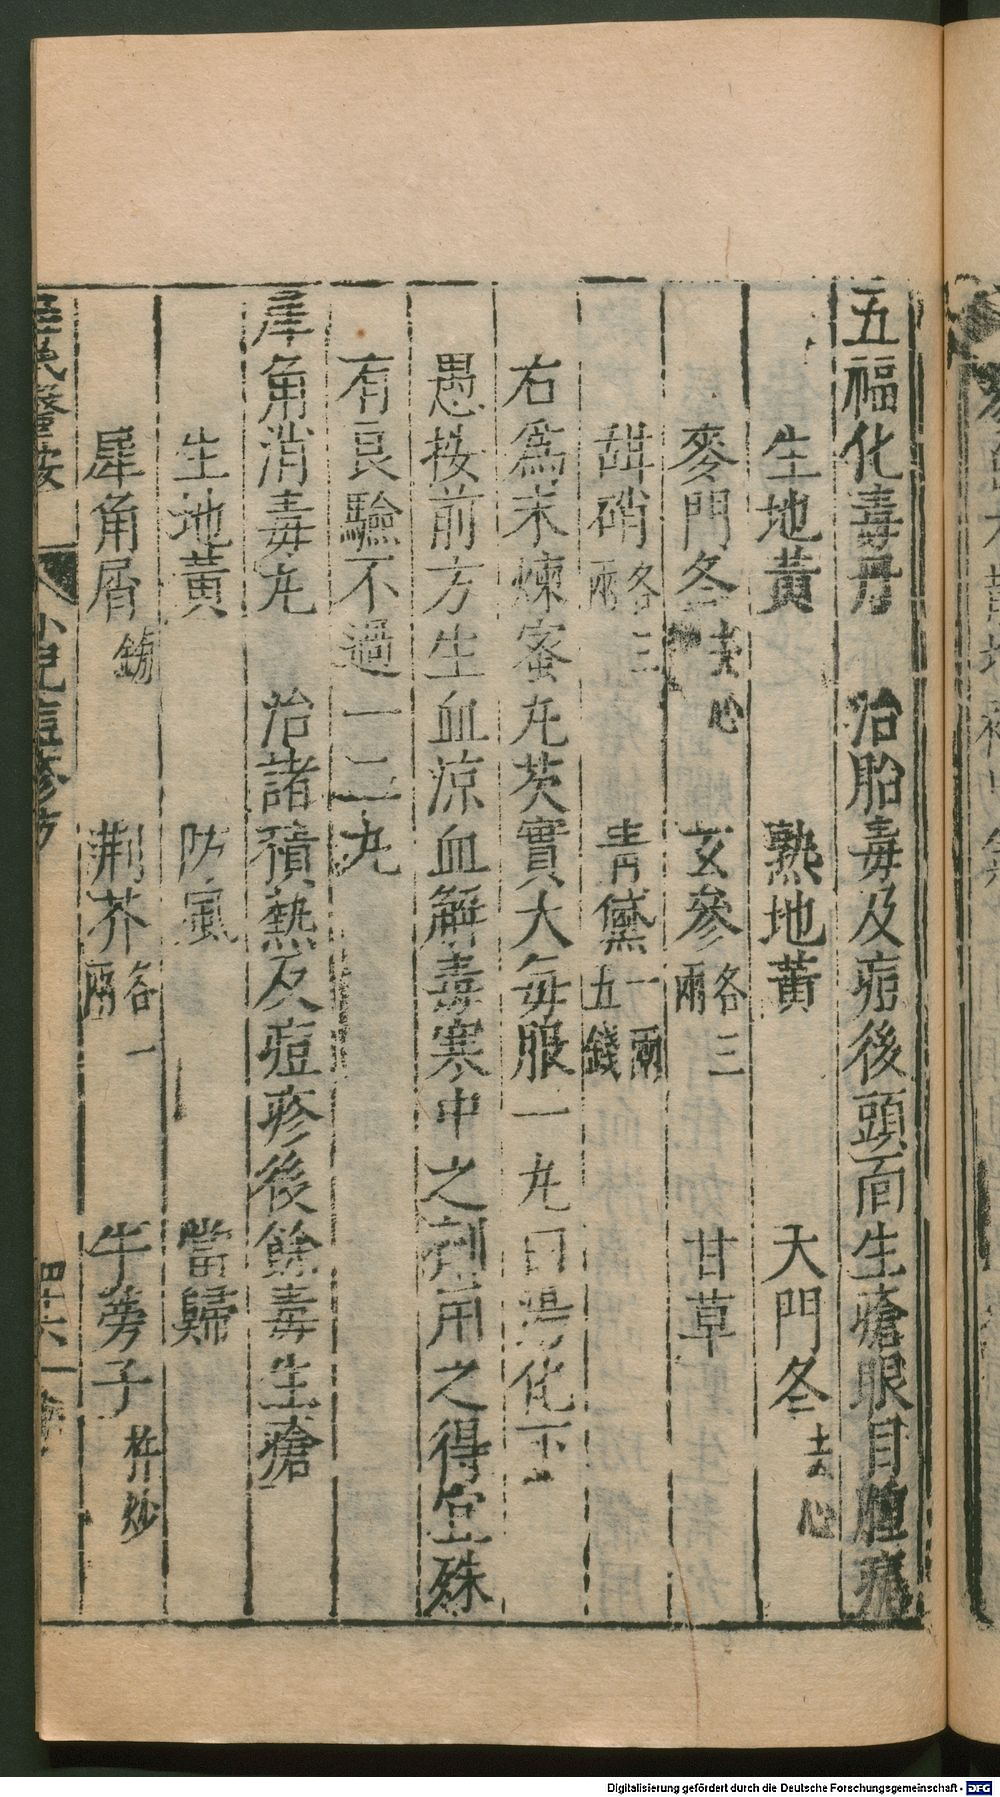 五福化毒丹　治胎毒及痘後頭面生瘡眼目腫痛
生地黃　熟地黃　天門冬去心
麥門冬去心　玄參各三兩　甘草
甜硝各三兩　青黛一兩五錢
右爲末煉蜜丸芡實大每服一丸白湯化下
愚按前方生血凉血解毒寒中之剤用之得宜殊
有良驗不過一二丸
犀角消毒丸　治諸積熱及痘疹後餘毒生瘡
生地黃　防風　當歸
犀角屑鎊　荆芥各一兩　牛蒡子杵炒
小兒痘疹方
四十六
Digitalisierung gefördert durch die Deutsche Forschungsgemeinschaft - DFG